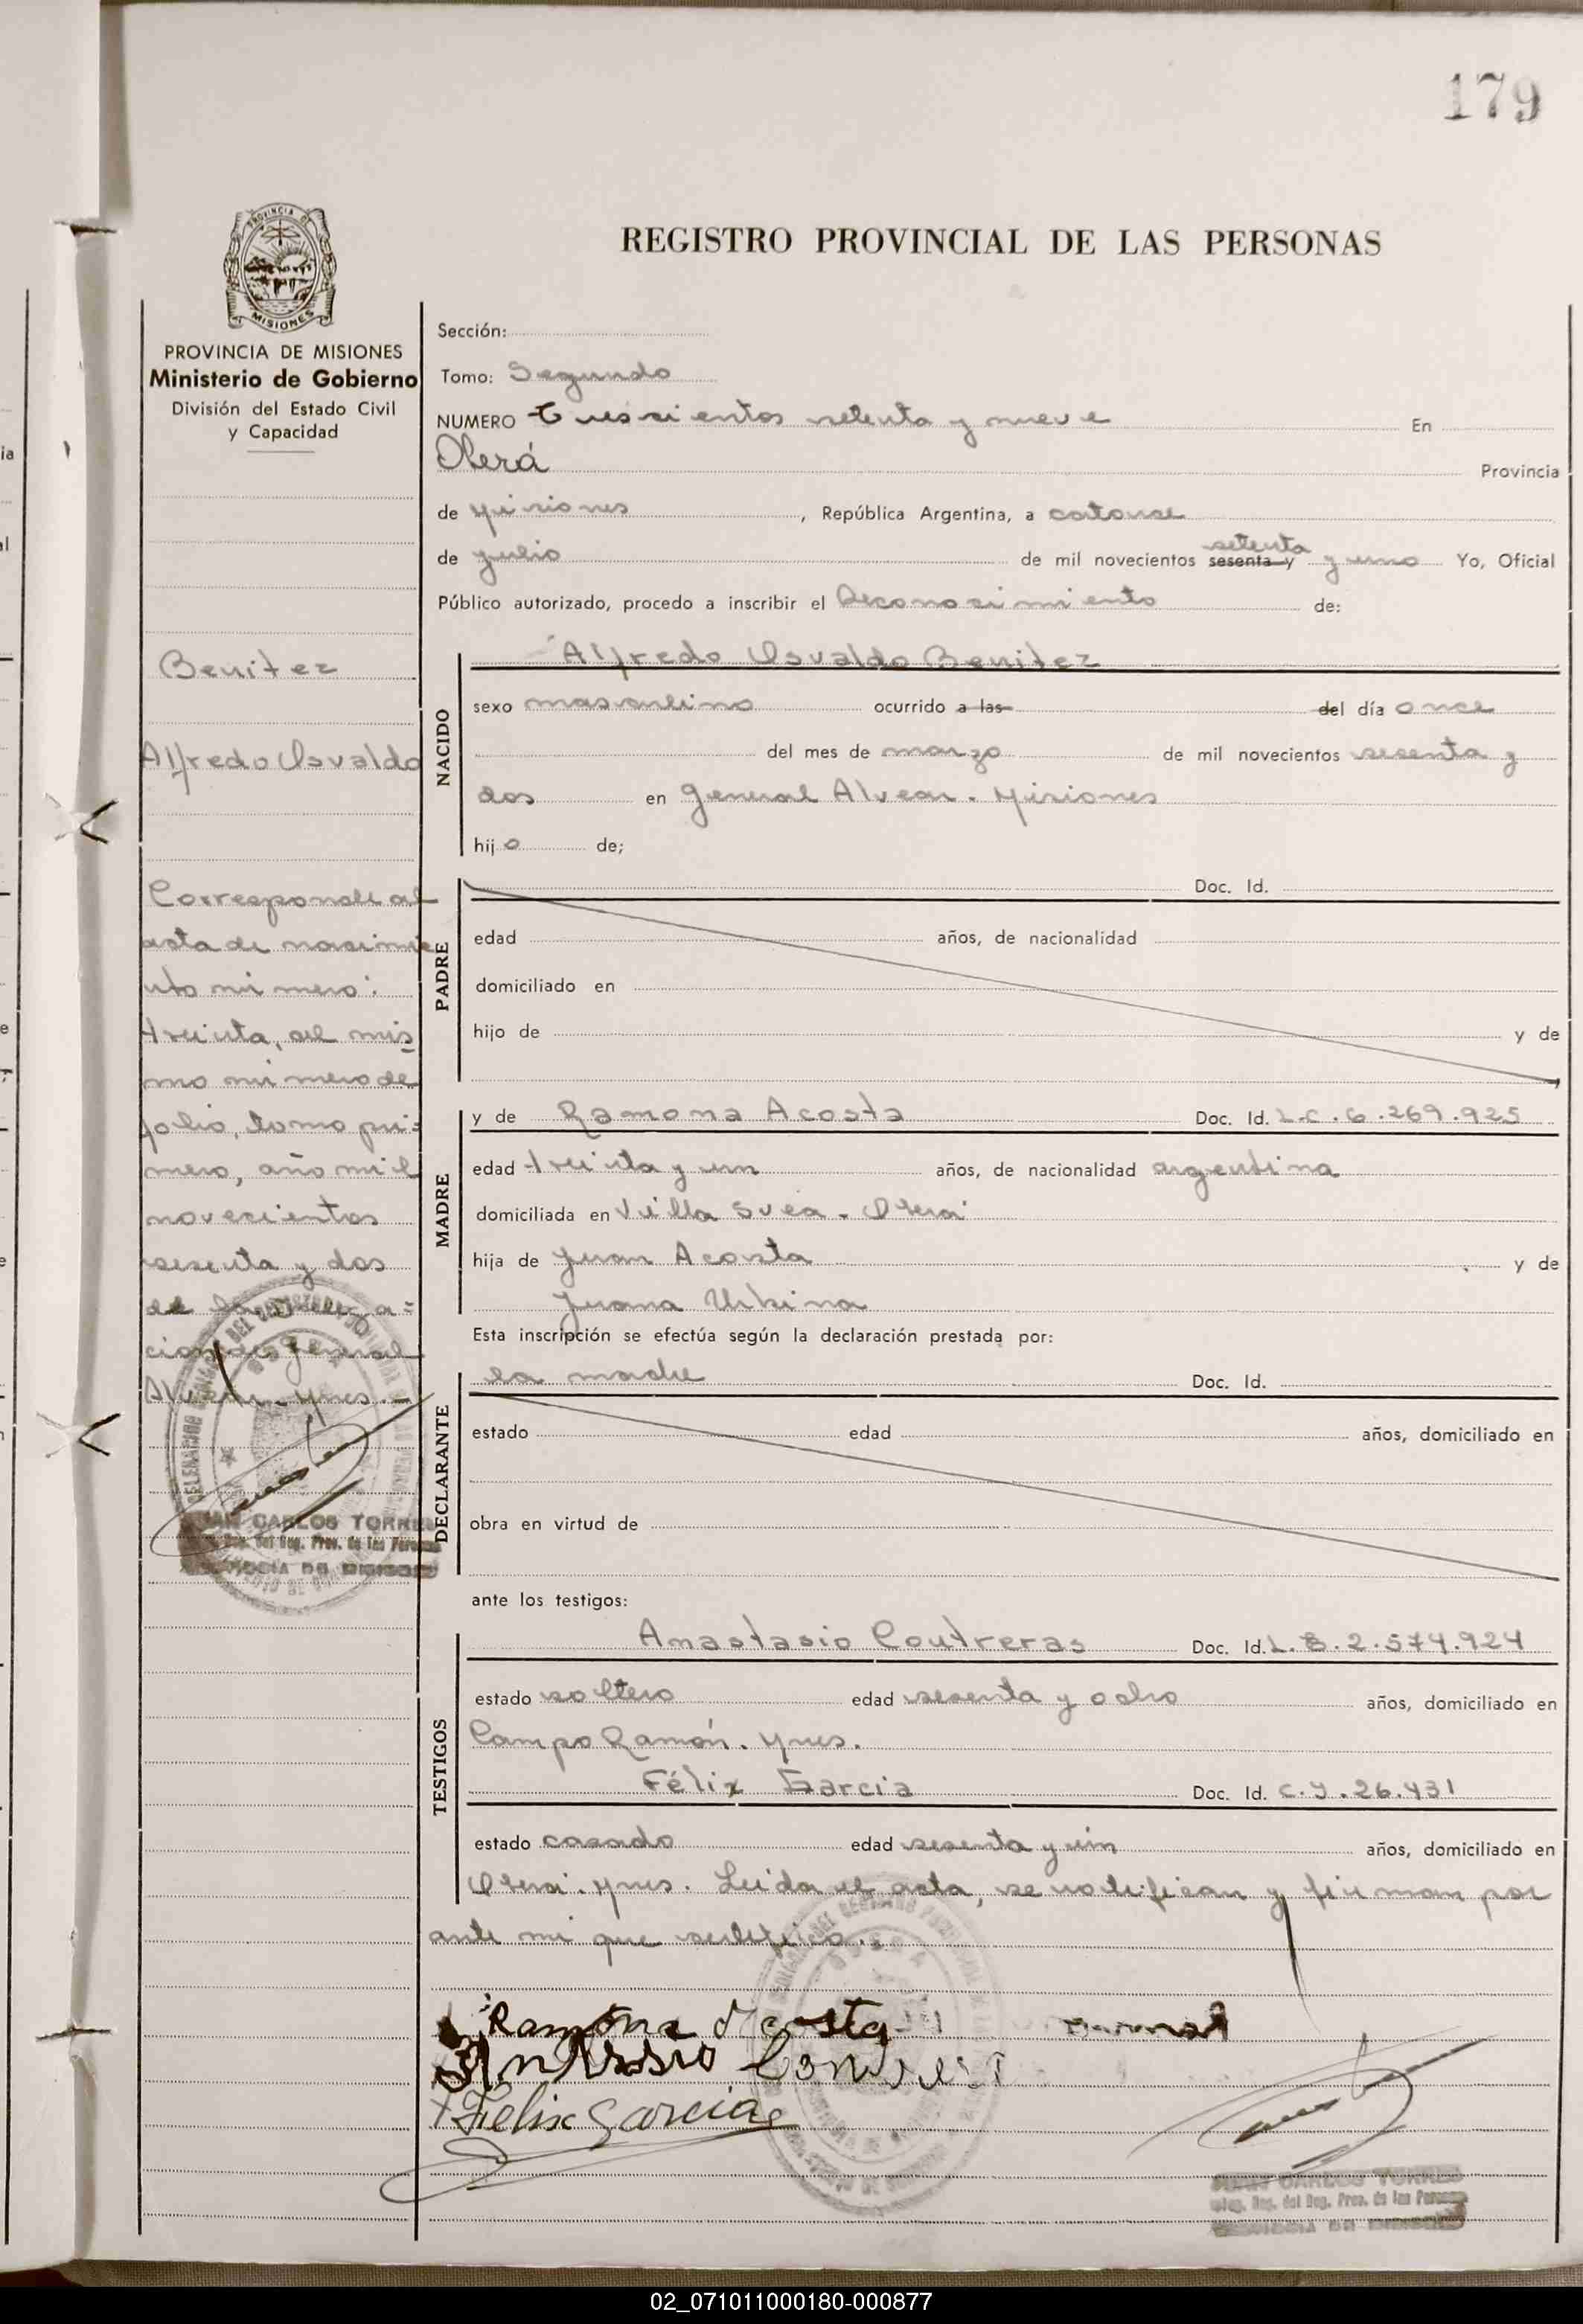 179
REGISTRO PROVINCIAL DE LAS PERSONAS
PROVINCIA DE MISIONES
Ministerio de Gobierno
División del Estado Civil
y Capacidad
Benitez
Alfredo Osvaldo
Corresponde al
acta de nacimie
nto número:
treinta, al mis
mo número de
folio, tomo pri=
mero, año mil
novecientos
sesenta y dos
de la
General
Alvear. Mnes.-
CARLOS TORRES
Sección:
Tomo: Segundo
NUMERO trescientos setenta y nueve En
Oberá Provincia
de Misiones, República Argentina, a catorce
de julio de mil novecientos sesenta y setenta y uno Yo, Oficial
Público autorizado, procedo a inscribir el Reconocimiento de:
NACIDO
Alfredo Osvaldo Benitez
sexo masculino ocurrido a las del día once
del mes de marzo de mil novecientos sesenta y
dos en General Alvear. Misiones
hijo de;
PADRE
Doc. Id.
edad años, de nacionalidad
domiciliado en
hijo de y de
MADRE
y de Ramona Acosta Doc. Id. L.C. 6.269.925
edad treinta y un años, de nacionalidad argentina
domiciliada en Villa Svea - Oberá
hija de Juan Acosta y de
Juana Urbina
Esta inscripción se efectúa según la declaración prestada por:
DECLARANTE
la madre Doc. Id.
estado edad años, domiciliado en
obra en virtud de
ante los testigos:
TESTIGOS
Anastasio Contreras Doc. Id. L.E. 2.574.924
estado soltero edad sesenta y ocho años, domiciliado en
Campo Ramón. Mnes.
Félix Garcia Doc. Id. C.I. 26.431
estado casado edad sesenta y un años, domiciliado en
Oberá. Mnes. Leida el acta, se notifican y firman por
ante mi que certifico.
Ramona Acosta
Felix Garcia
JUAN CARLOS TORRES
02_071011000180-000877